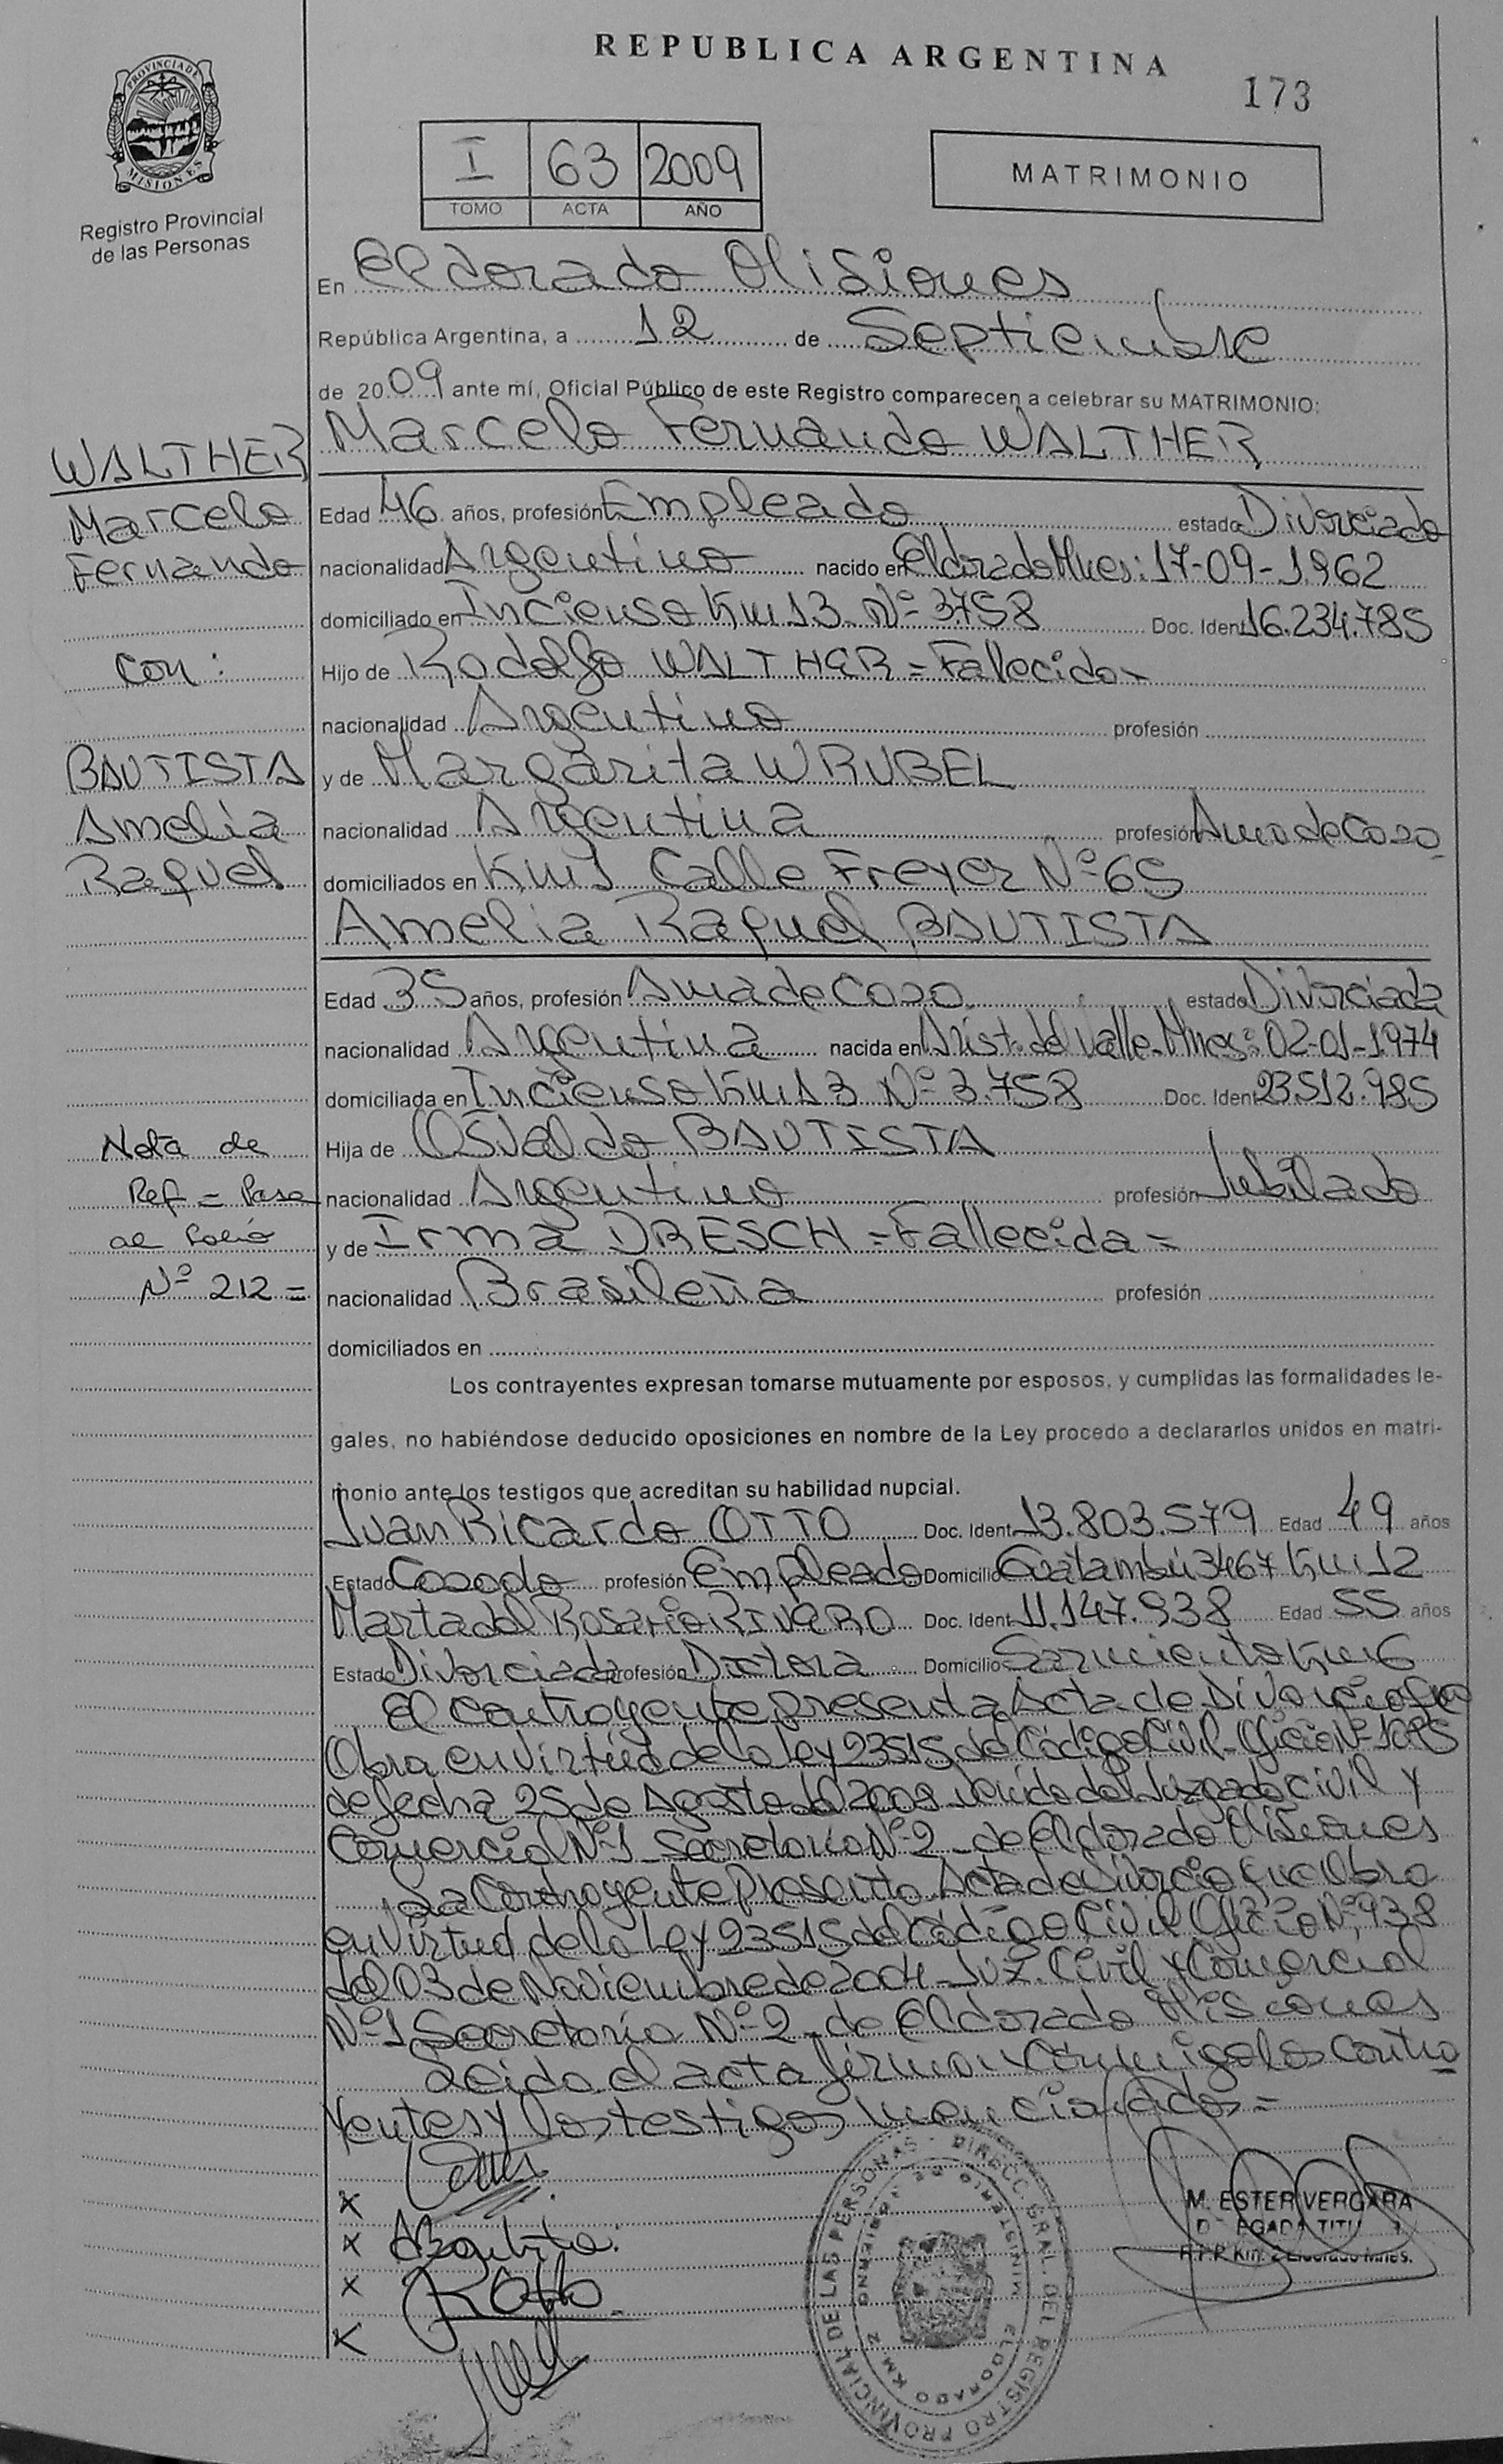 REPUBLICA ARGENTINA
173
PROVINCIA DE
MISIONES
Registro Provincial
de las Personas
I 63 2009
TOMO ACTA AÑO
MATRIMONIO
En Eldorado Misiones
República Argentina, a 12 de Septiembre
de 2009 ante mí, Oficial Público de este Registro comparecen a celebrar su MATRIMONIO:
Marcelo Fernando WALTHER
WALTHER
Marcelo
Fernando
con:
BAUTISTA
Amelia
Raquel
Edad 46 años, profesión Empleado estado Divorciado
nacionalidad Argentino nacido en Eldorado Mnes: 17-09-1962
domiciliado en Incienso Km 13 Nº 3758 Doc. Ident 16.234.785
Hijo de Rodolfo WALTHER = Fallecido
nacionalidad Argentino profesión
y de Margarita WRUBEL
nacionalidad Argentina profesión Ama de Casa
domiciliados en Km 1 Calle Freyer Nº 65
Amelia Raquel BAUTISTA
Edad 35 años, profesión Ama de Casa estado Divorciada
nacionalidad Argentina nacida en Arist. del Valle-Mnes: 02-01-1974
domiciliada en Incienso Km 13 Nº 3.758 Doc. Ident 23.512.985
Hija de Osvaldo BAUTISTA
nacionalidad Argentino profesión Jubilado
y de Irma DRESCH = Fallecida =
nacionalidad Brasileña profesión
domiciliados en
Nota de
Ref = Pase
al Folio
Nº 212 =
Los contrayentes expresan tomarse mutuamente por esposos, y cumplidas las formalidades le-
gales, no habiéndose deducido oposiciones en nombre de la Ley procedo a declararlos unidos en matri-
monio ante los testigos que acreditan su habilidad nupcial.
Juan Ricardo OTTO Doc. Ident 13.803.579 Edad 49 años
Estado Casado profesión Empleado Domicilio Guatambú 3467 Km 12
Marta del Rosario RIVERO Doc. Ident 11.147.938 Edad 55 años
Estado Divorciada profesión Domicilio Sarmiento Km 6
El contrayente presenta Acta de Divorcio que
Obra en virtud de la Ley 23515 de Código Civil - Oficio Nº
de fecha 25 de Agosto de 2009 venido del Juzgado Civil y
Comercial Nº 1 Secretaría Nº 2 de Eldorado Misiones
La Contrayente presenta Acta de Divorcio que Obra
en virtud de la Ley 23515 del Código Civil Oficio Nº 938
del 03 de Noviembre de 2004 - Juz. Civil y Comercial
Nº 1 Secretaría Nº 2 de Eldorado Misiones
Leida el acta firman conmigo los contra
yentes y los testigos mencionados =
x
x
x
x
M. ESTER VERGARA
DELEGADA TITULAR
R.P.P. Km. 2 Eldorado Mnes.
DIRECC. GRAL. DEL REGISTRO PROVINCIAL DE LAS PERSONAS
MINISTERIO DE GOBIERNO
ELDORADO KM. 2